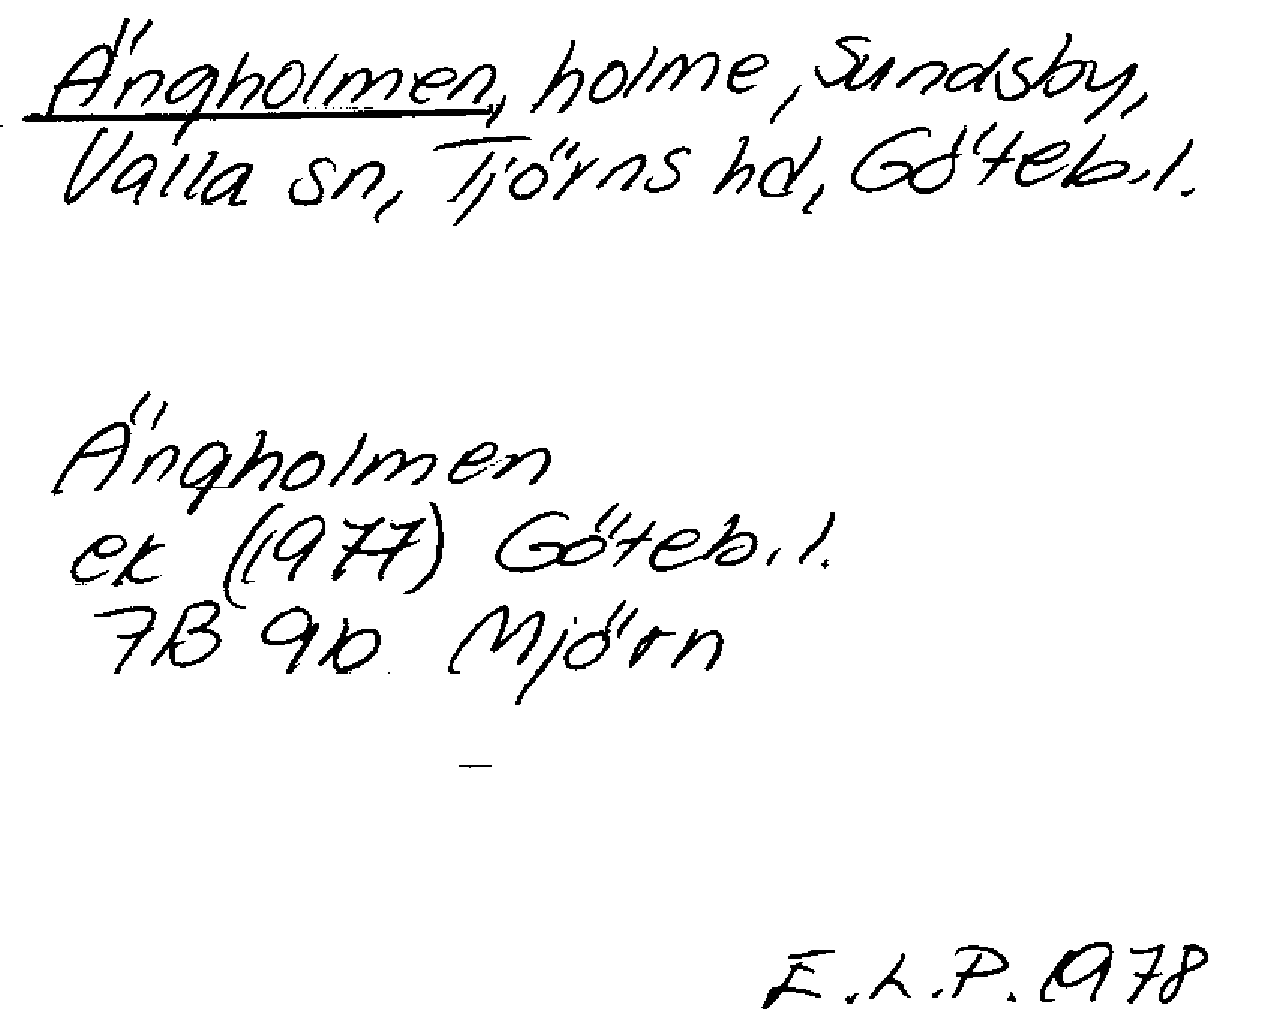 Ängholmen, holme, Sundsby,
Valla sn, Tjörns hd, Göteb. l.
Ängholmen
ek (1977) Göteb. l.
7B 9b Mjörn
E.L.P. 1978